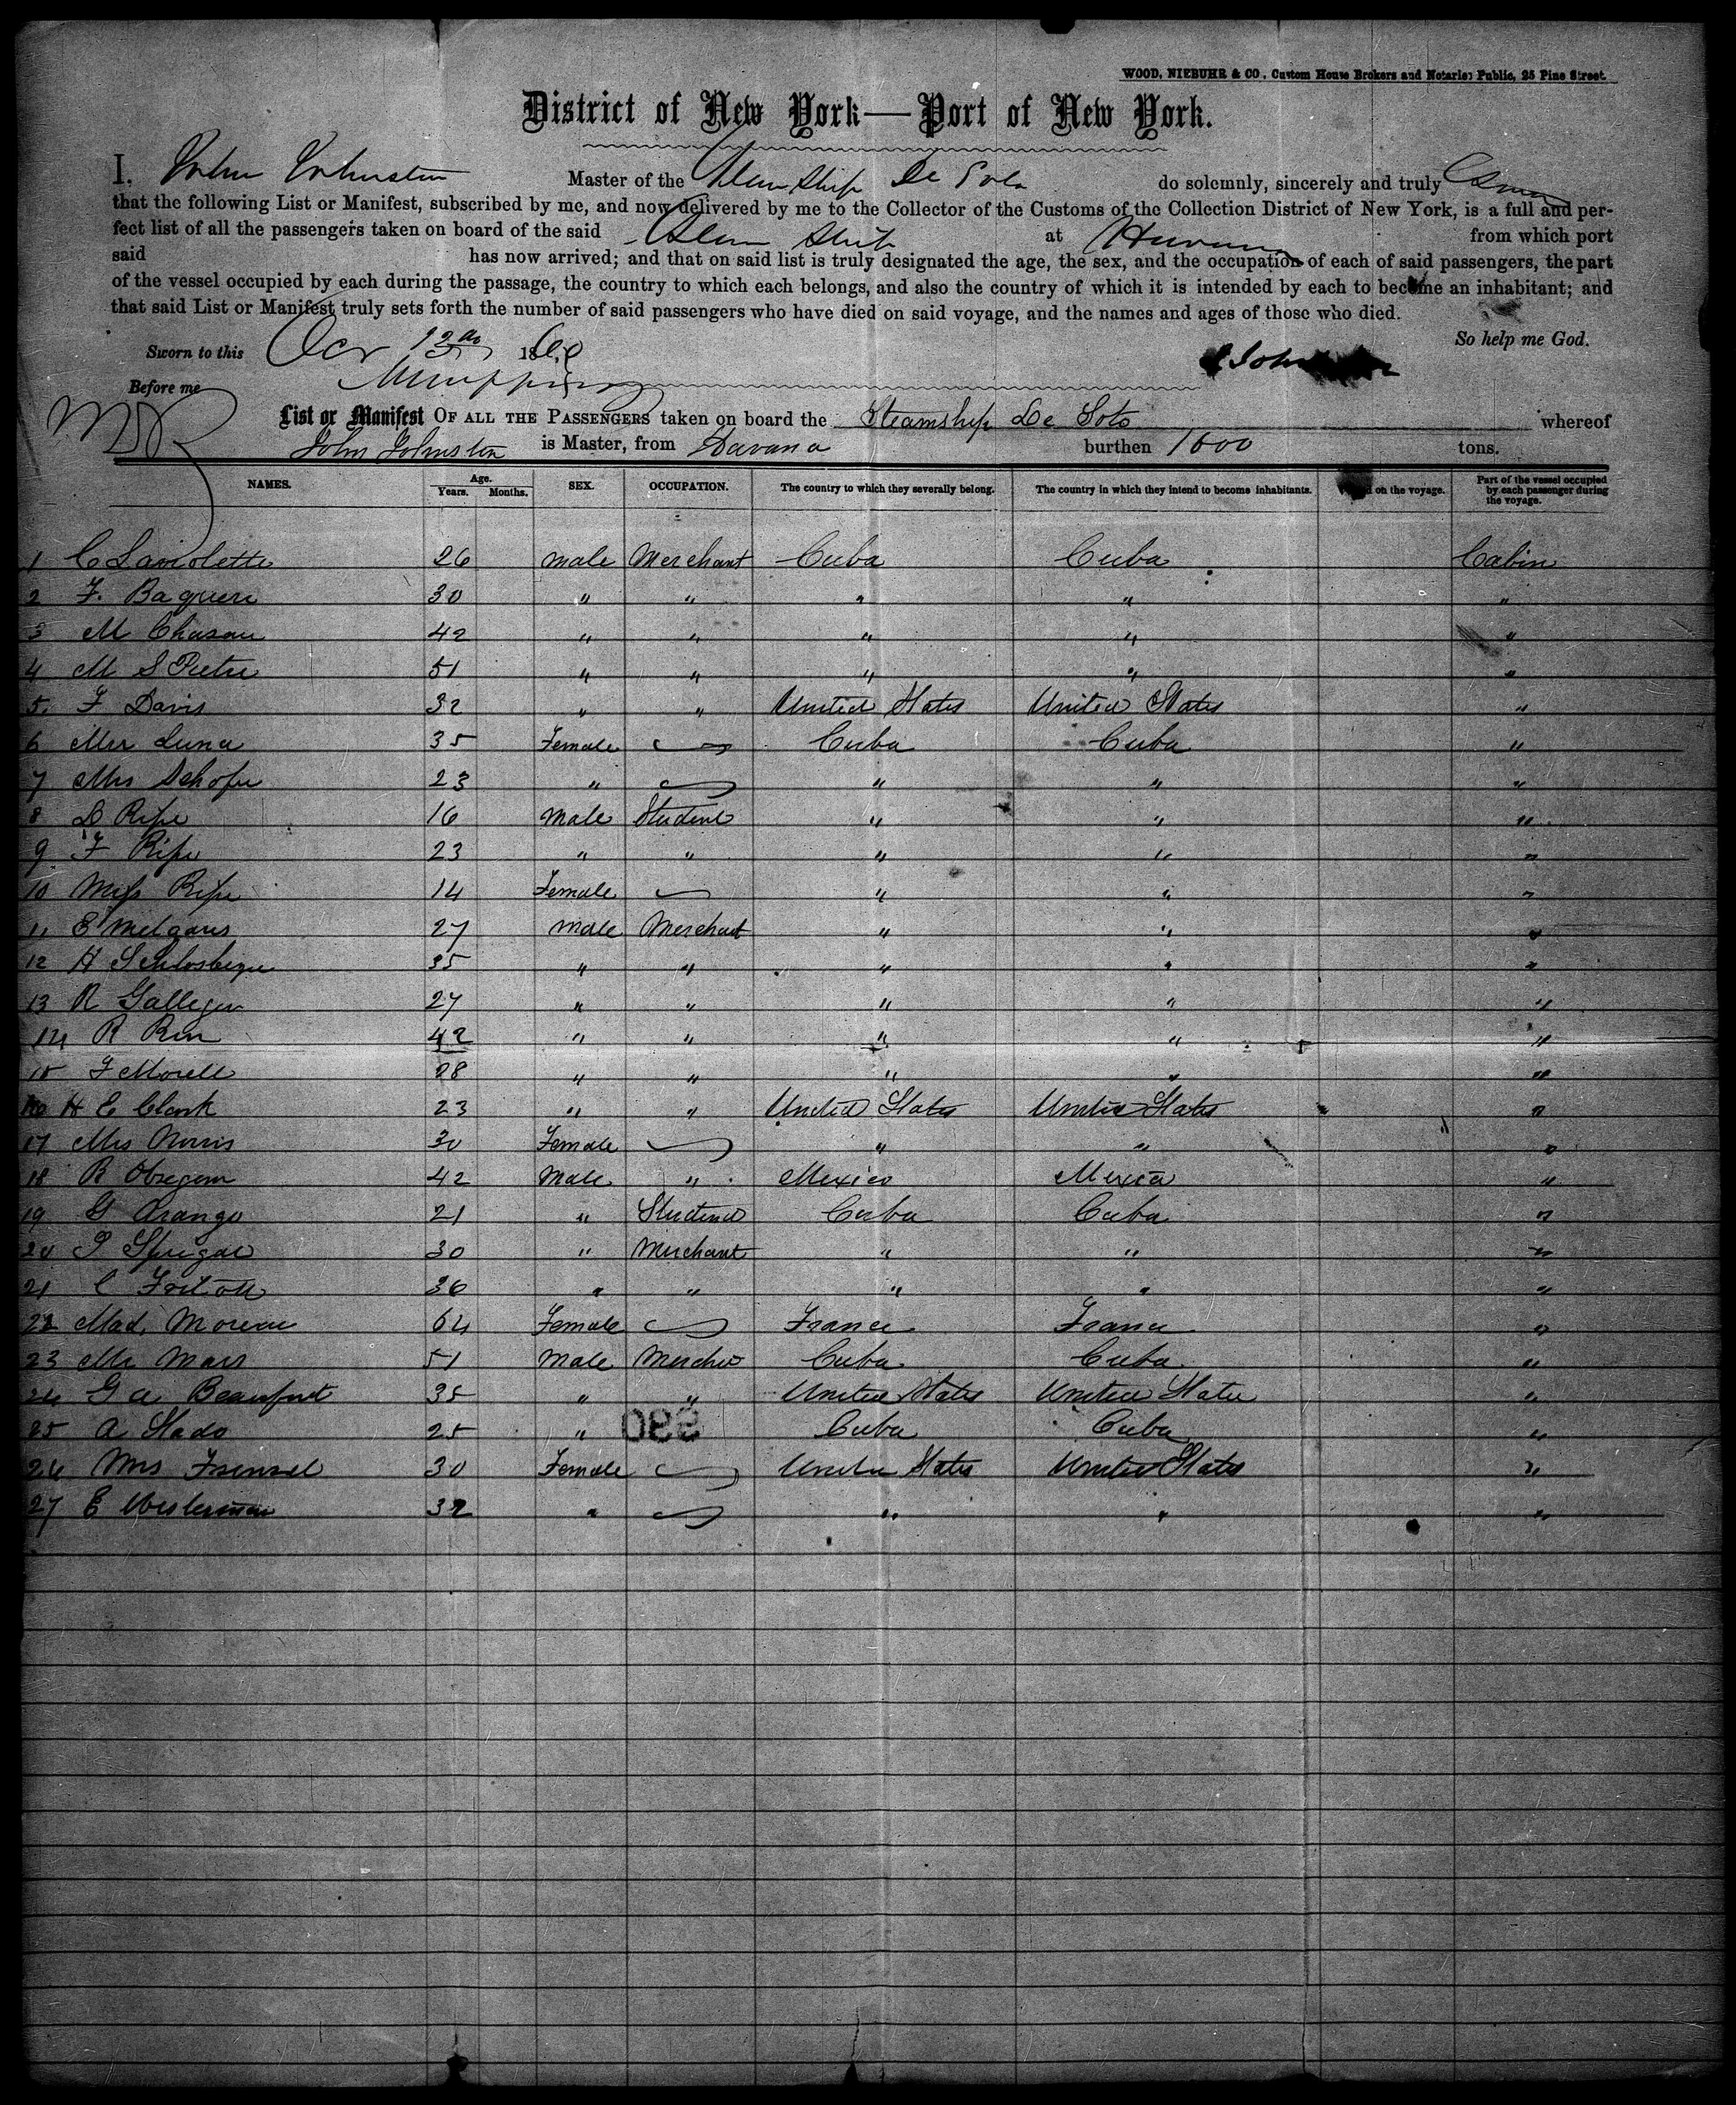 WOOD, NIEBUHR & CO., Custom House Brokers and Notaries Public, 25 Pine Street.
District of New York—Port of New York.
I, John Johnston Master of the Steam Ship De Soto do solemnly, sincerely and truly
that the following List or Manifest, subscribed by me, and now delivered by me to the Collector of the Customs of the Collection District of New York, is a full and per-
fect list of all the passengers taken on board of the said Steam Ship at Havana from which port
said has now arrived; and that on said list is truly designated the age, the sex, and the occupation of each of said passengers, the part
of the vessel occupied by each during the passage, the country to which each belongs, and also the country of which it is intended by each to become an inhabitant; and
that said List or Manifest truly sets forth the number of said passengers who have died on said voyage, and the names and ages of those who died.
So help me God.
Sworn to this Oct 1860
Before me
List or Manifest OF ALL THE PASSENGERS taken on board the Steamship De Soto whereof
John Johnston is Master, from Havana burthen 1600 tons.
NAMES. Age. Years. Months. SEX. OCCUPATION. The country to which they severally belong. The country in which they intend to become inhabitants. on the voyage. Part of the vessel occupied by each passenger during the voyage.
1 C Laviolette 26 male Merchant Cuba Cuba Cabin
2 F. Baguere 30 " " " " "
3 M Chasau 42 " " " " "
4 M S Pietre 51 " " " " "
5 F Davis 32 " " United States United States "
6 Mrs Luna 35 Female Cuba Cuba "
7 Mrs 23 " " " "
8 D Ripe 16 Male Student " " "
9 F Ripe 23 " " " " "
10 Miss Ripe 14 Female " " "
11 E Melgares 27 Male Merchant " " "
12 H 35 " " " " "
13 R 27 " " " " "
14 R 42 " " " " "
15 F Morell 28 " " " " "
16 H E Clark 23 " " United States United States "
17 Mrs Norris 30 Female " " "
18 R Obregon 42 Male " Mexico Mexico "
19 G Arango 21 " Student Cuba Cuba "
20 30 " Merchant " " "
21 C 36 " " " " "
22 Mad. Moreau 64 Female France France "
23 Mr Mars 51 Male Cuba Cuba "
24 G A Beaufort 35 " " United States United States "
25 A 25 " Cuba Cuba "
26 Mrs Frensel 30 Female United States United States "
27 E Westerman 32 " " " "